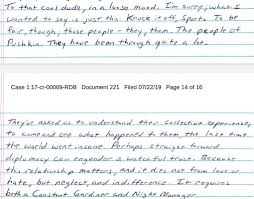 To that cool dude, in a loose mood. I'm sorry; what I
wanted to say is just this: Knock it off, Sport. To be
fair, though, those people - they, them. The people of
Pushkin. They have been through quite a lot.
Case 1:17-cr-00069-RDB Document 221 Filed 07/22/19 Page 14 of 16
They've asked us to understand their collective experience,
to come and see what happened to them the last time
the world went insane. Perhaps straight forward
diplomacy can engender a watchful trust. Because
this relationship matters, and it dies not from love or
hate, but neglect, and indifference. It requires
both a Constant Gardener and Night Manager.